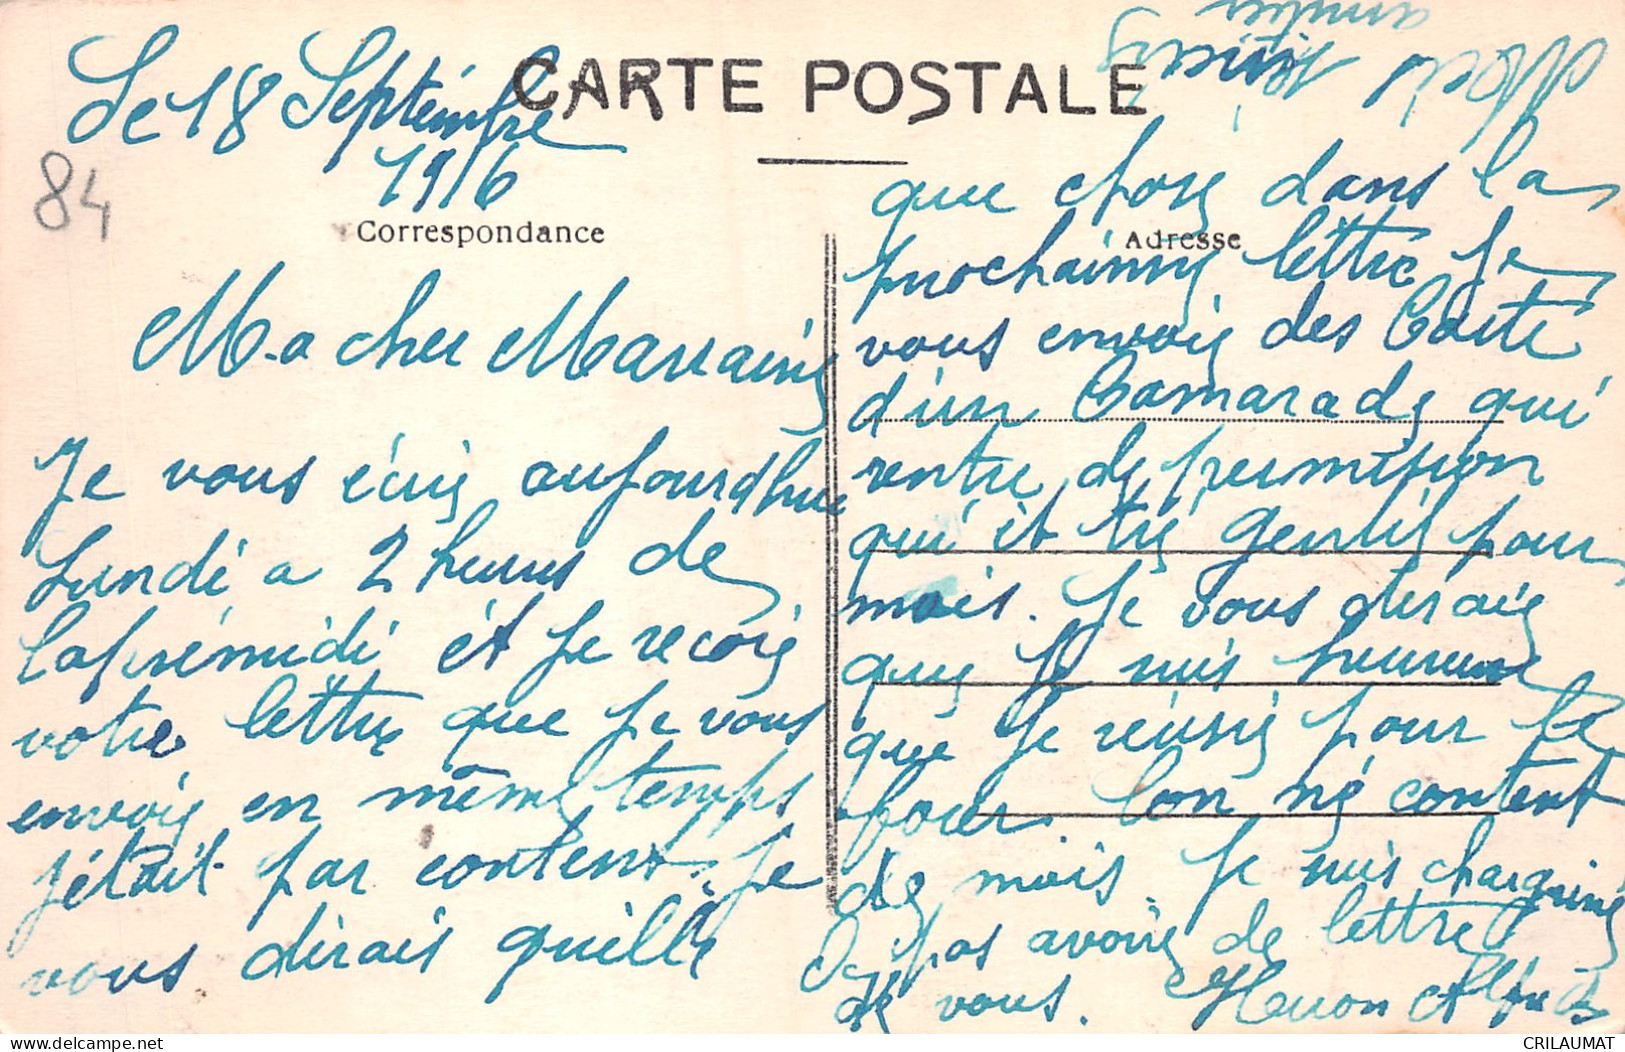 Le 18 Septémbre
1916
84
CARTE POSTALE
Correspondance
Adresse
Ma cher Marraine
Je vous écris aujourdhui
Lundi a 2 heures de
laprémidi ét je reçois
votre lettre que je vous
envois en même temps
jétait pas content. Je
vous dirais quelle
que chose dans la
prochainne lettre je
vous envois des Carte
d'un Camarade qui
rentre de permision
qui ét très gentil pour
mois. Je vous dirais
que je suis heureuse
que je réusis pour le
four. lon né content
de mois. Je suis chargriné
pas avoir de lettre
de vous. Heron Alfred
amitié
CRILAUMAT